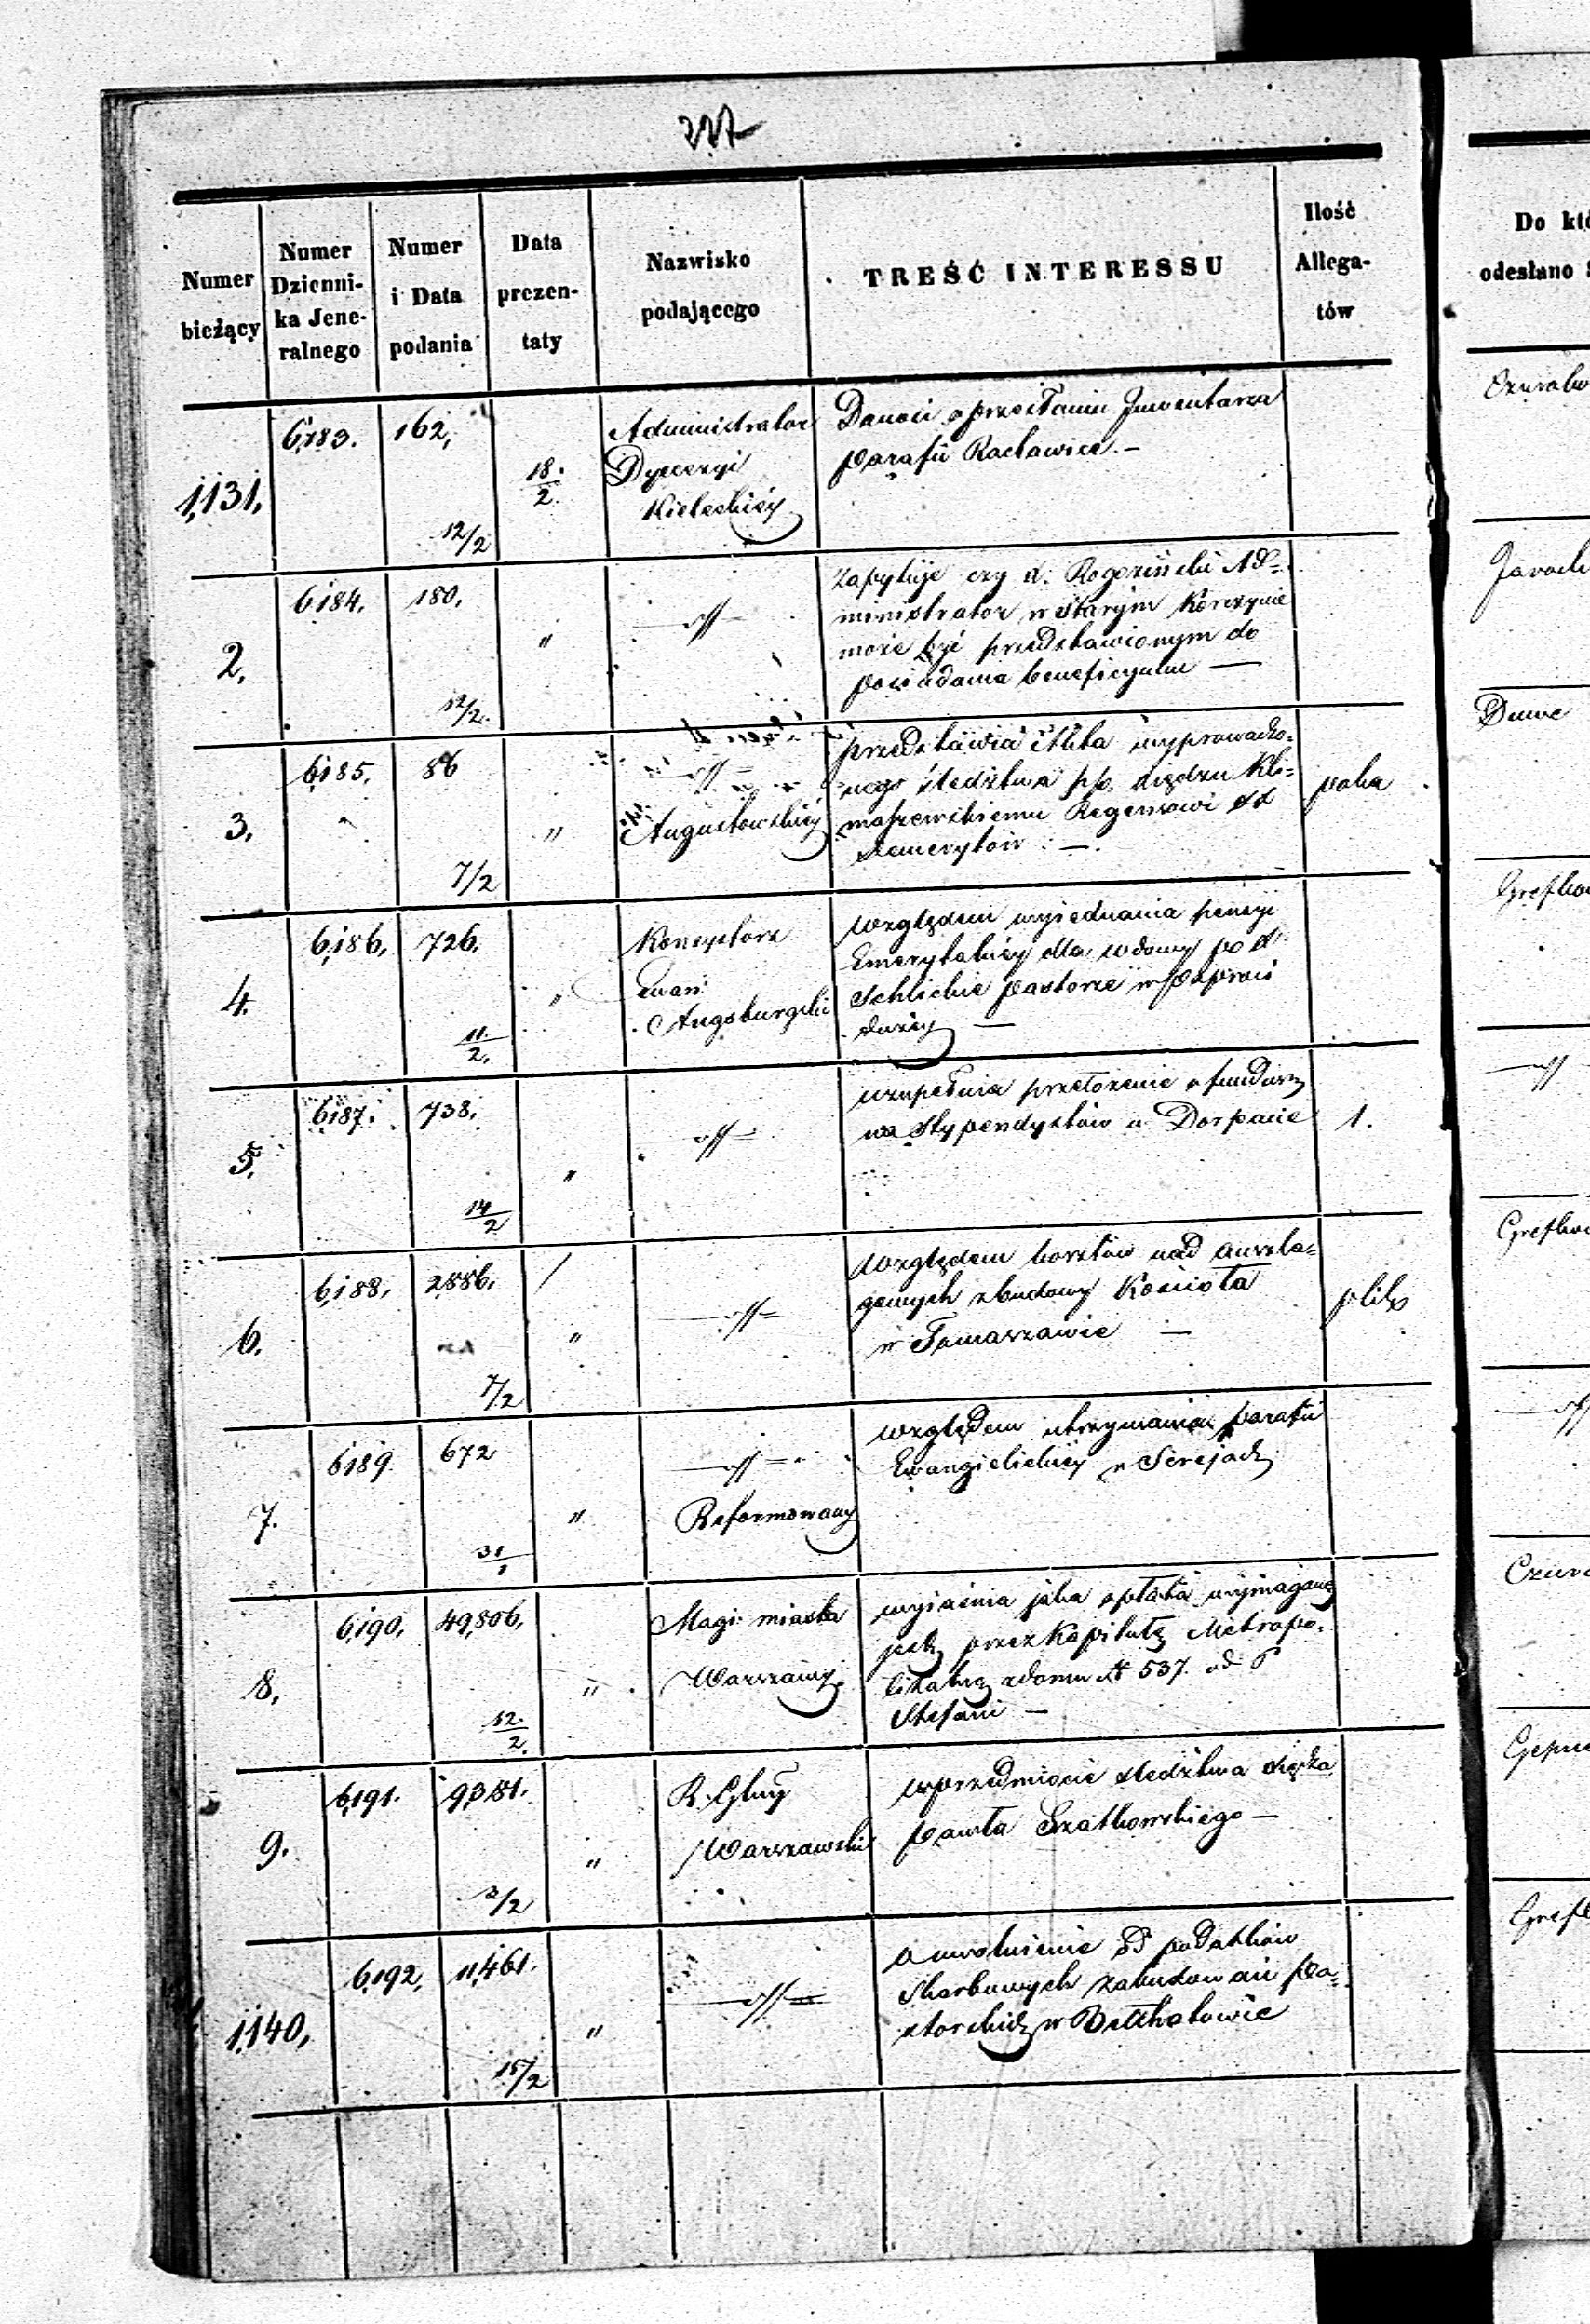 227
Numer bieżący
Numer Dzienni-
ka Jene-
ralnego
Numer i Data podania
Data prezen-
taty
Nazwisko podającego
TREŚĆ INTERESSU
Ilość Allega-
tów
Do
odesłano
1,131,
6,183.
162,
12/2
18/2
Administrator
Dyecezyi
Kieleckiéj
Donosi o przesłaniu Inwentarza
parafii Racławice. —
2,
6184,
180,
12/2.
"
Zapytuje czy X. Rogoziński Ad=
ministrator w Starym Korczynie
może być przedstawionym do
posiadania beneficyum —
3,
6,185,
86
7/2
"
Augustowskiéj
przedstawia akta wyprowadzo-
nego śledztwa pp. księdzu Kli=
maszewskiemu Regensowi XX
Demerytów. —
paka
4.
6,186,
726.
11/2.
"
Konsystorz
Ewan:
Augsburgski
względem wyjednania pensyi
Emerytalnéj dla wdowy po X.
Schlichie pastorze w Paproci
dużéj —
5,
6187.
738,
14/2
"
uzupełnia przełożenie o fundusz
na Stypendystów w Dorpacie
1.
6.
6,188,
2,886,
7/2
"
względem kosztów nad anszla=
gowych z budowy Kościoła
w Tomaszowie —
plik
7.
6189.
672
31/1
"
Reformowany
względem utrzymania parafii
Ewangielickiéj w Serejach
8,
6,190,
49,806,
12/2.
"
Magi: miasta
Warszawy
wyjaśnia jaka opłata wymaganą
jest przez Kapitułę Metropo-
litalną z domu N 537. od P
Stefani —
9.
6,191.
9,381.
3/2
"
R. Glny
Warszawski
w przedmiocie śledztwa księdza
Pawła Szatkowskiego —
1,140,
6,192,
11,461.
15/2
"
o uwolnienie od podatków
Skarbowych zabudowań Pa=
storskich w Bełchatowie